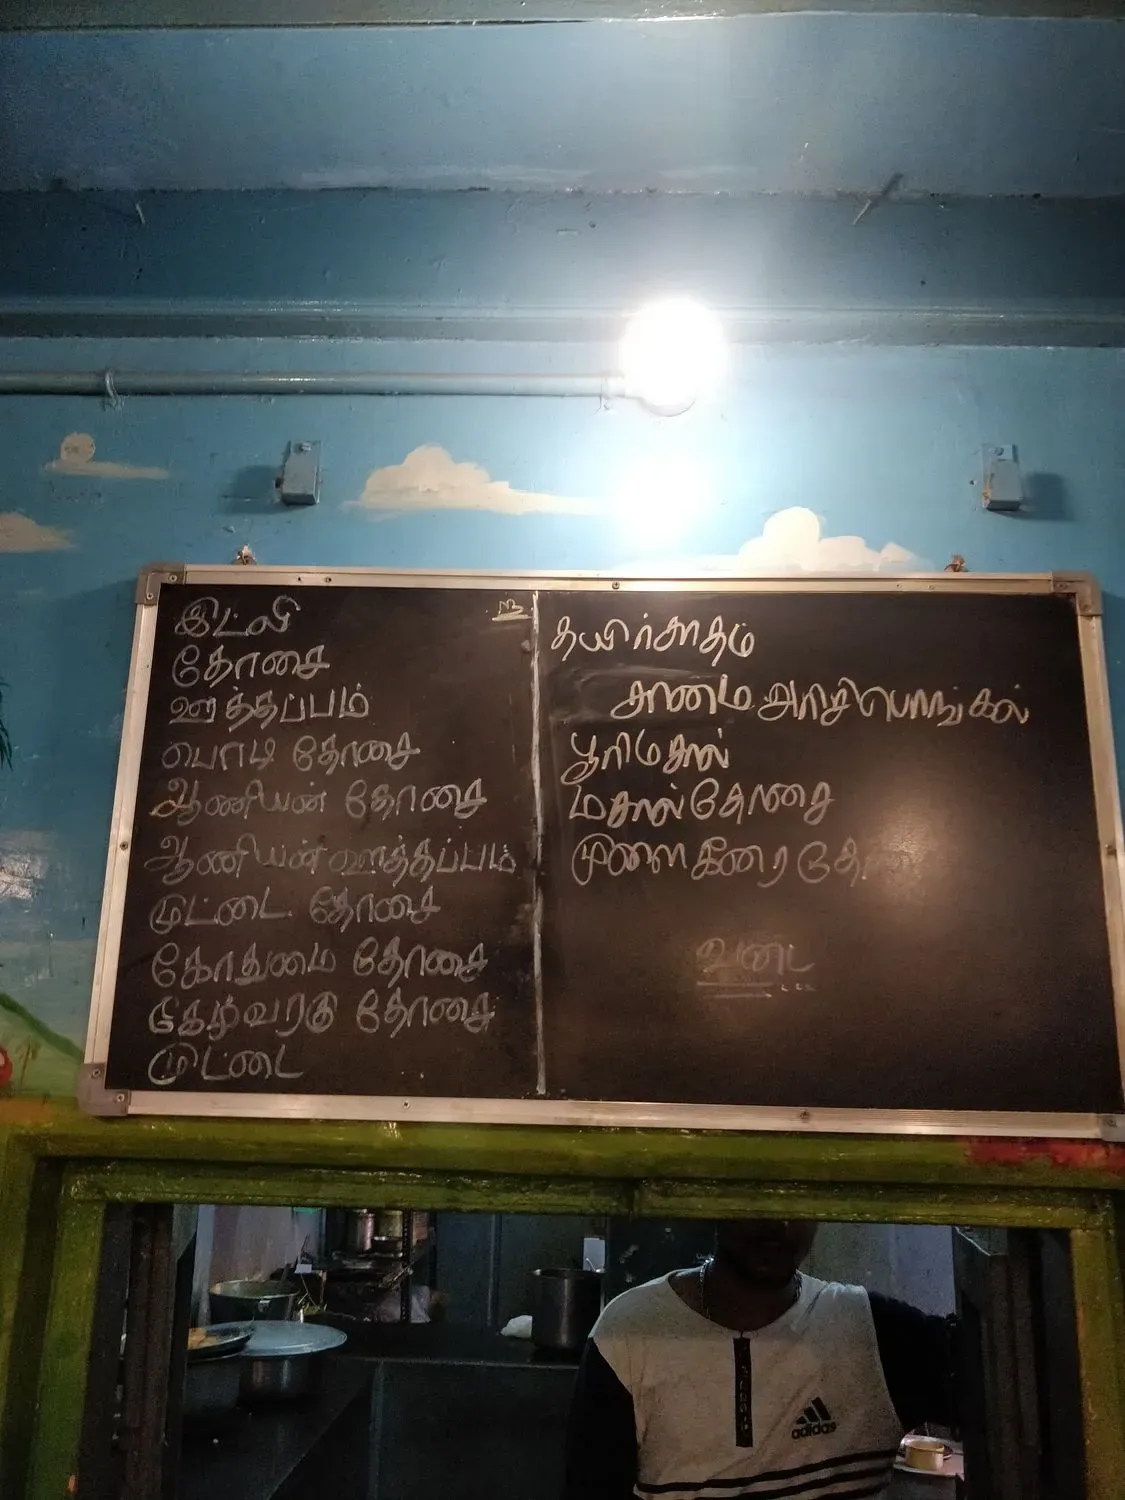 இட்லி
தோசை
ஊத்தப்பம்
பொடி தோசை
ஆணியன் தோசை
ஆணியன் ஊத்தப்பம்
முட்டை தோசை
கோதுமை தோசை
கேழ்வரகு தோசை
முட்டை
தயிர்சாதம்
சாமை அரிசி பொங்கல்
பூரிமசால்
மசால்தோசை
கீரை தோ
வடை
adidas